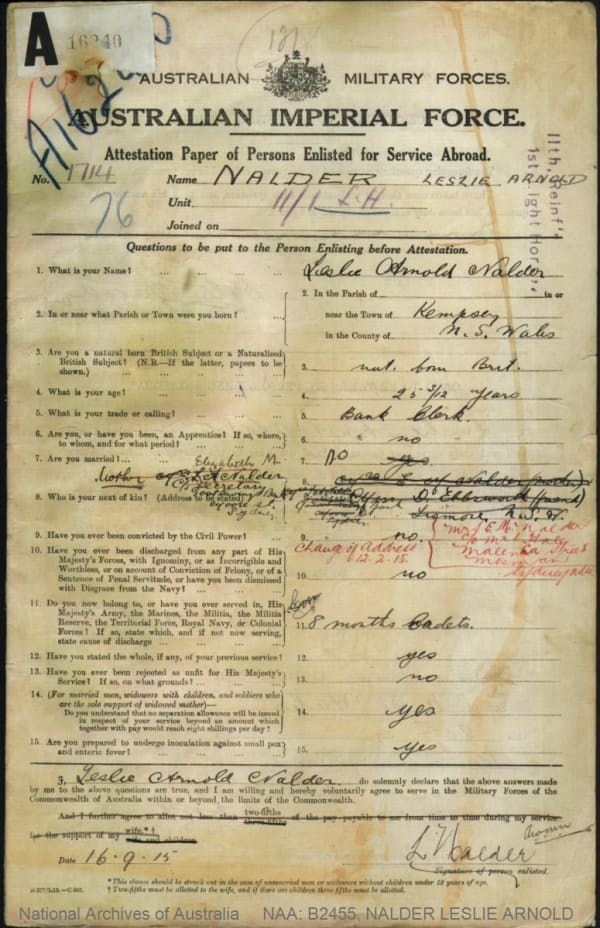 A 16240
A16240
121
AUSTRALIAN MILITARY FORCES.
AUSTRALIAN IMPERIAL FORCE.
Attestation Paper of Persons Enlisted for Service Abroad.
No. 1714 Name NALDER LESLIE ARNOLD
76 Unit 11/1 L.H.
Joined on
11th Reinf's
1st Light Horse
Questions to be put to the Person Enlisting before Attestation.
1. What is your Name? ... Leslie Arnold Nalder
2. In or near what Parish or Town were you born? ... 2. In the Parish of in or
near the Town of Kempsey
in the County of N. S. Wales
3. Are you a natural born British Subject or a Naturalized
British Subject? (N.B.—If the latter, papers to be
shown.) ... 3. nat. born Brit.
4. What is your age? ... 4. 25 3/12 years
5. What is your trade or calling? ... 5. Bank Clerk.
6. Are you, or have you been, an Apprentice? If so, where,
to whom, and for what period? ... 6. no
7. Are you married? ... 7. no yes.
Elizabeth M.
Mother L A Nalder
Secretary
8. Who is your next of kin? (Address to be stated) 8. Nalder (mother)
Lismore N.S.W.
9. Have you ever been convicted by the Civil Power? ... 9. no.
Change of Address
12-2-18.
Mrs E. M. Nalder
Mosman
Sydney
10. Have you ever been discharged from any part of His
Majesty's Forces, with Ignominy, or as Incorrigible and
Worthless, or on account of Conviction of Felony, or of a
Sentence of Penal Servitude, or have you been dismissed
with Disgrace from the Navy? ... 10. no
11. Do you now belong to, or have you ever served in, His
Majesty's Army, the Marines, the Militia, the Militia
Reserve, the Territorial Force, Royal Navy, or Colonial
Forces? If so, state which, and if not now serving,
state cause of discharge ... 11. 8 months Cadets.
12. Have you stated the whole, if any, of your previous service? 12. yes
13. Have you ever been rejected as unfit for His Majesty's
Service? If so, on what grounds? ... 13. no
14. (For married men, widowers with children, and soldiers who
are the sole support of widowed mother)—
Do you understand that no separation allowance will be issued
in respect of your service beyond an amount which
together with pay would reach eight shillings per day? 14. yes
15. Are you prepared to undergo inoculation against small pox
and enteric fever? ... 15. yes
I, Leslie Arnold Nalder do solemnly declare that the above answers made
by me to the above questions are true, and I am willing and hereby voluntarily agree to serve in the Military Forces of the
Commonwealth of Australia within or beyond the limits of the Commonwealth.
And I further agree to allot not less than two-fifths three-fifths of the pay payable to me from time to time during my service
for the support of my wife.*† wife and children
Date 16-9-15 L Nalder
Signature of person enlisted.
*This clause should be struck out in the case of unmarried men or widowers without children under 18 years of age.
† Two-fifths must be allotted to the wife, and if there are children three-fifths must be allotted.
National Archives of Australia NAA: B2455, NALDER LESLIE ARNOLD